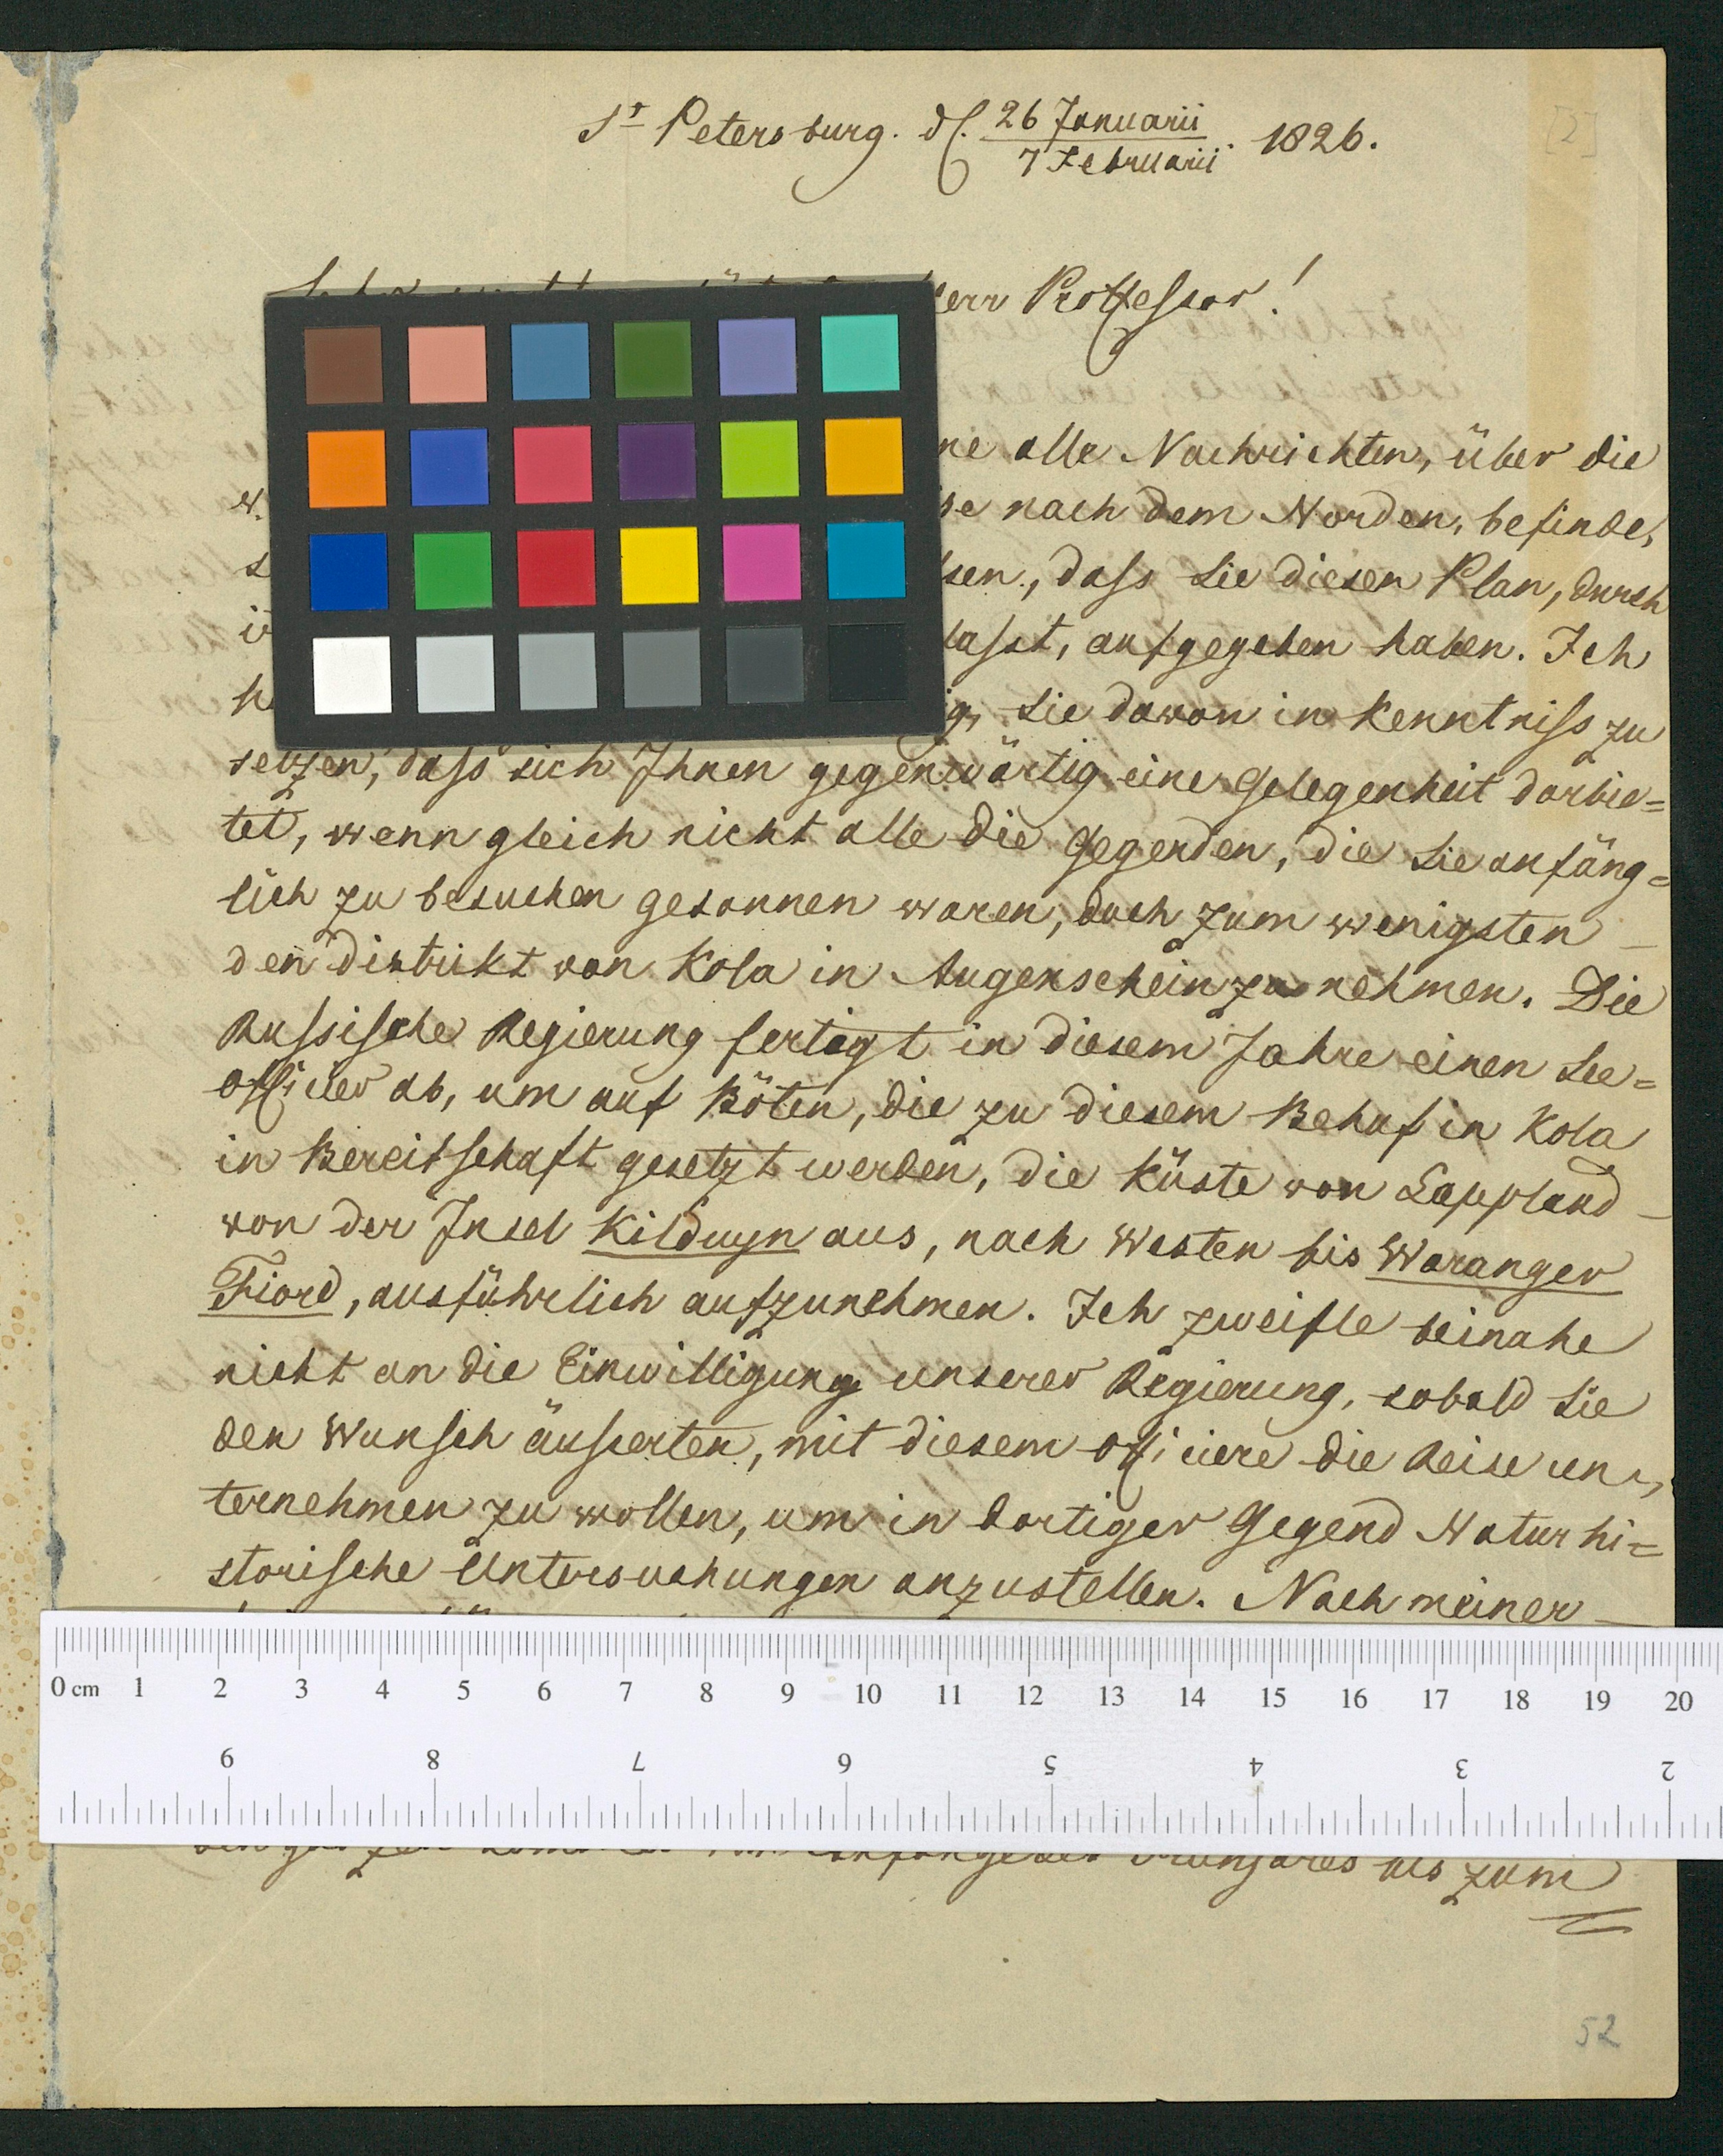 St Petersburg. d. 26 Januarii / 7 Februarii 1826.
[2]
Herr Professor!
alle Nachrichten, über die
nach dem Norden, befinde,
dass Sie diesen Plan, durch
aufgegeben haben. Ich
Sie davon in Kenntniss zu
setzen, dass sich Ihnen gegenwärtig eine Gelegenheit darbie=
tet, wenn gleich nicht alle die Gegenden, die Sie anfäng=
lich zu besuchen gesonnen waren, doch zum wenigsten
den Distrikt von Kola in Augenschein zu nehmen. Die
Russische Regierung fertigt in diesem Jahre einen See=
officier ab, um auf Böten, die zu diesem Behuf in Kola
in Bereitschaft gesetzt werden, die Küste von Lappland
von der Insel Kilduyn aus, nach Westen bis Waranger
Fiord, ausführlich aufzunehmen. Ich zweifle beinahe
nicht an die Einwilligung unserer Regierung, sobald Sie
den Wunsch äusserten, mit diesem Officiere die Reise un,
ternehmen zu wollen, um in dortiger Gegend Natur hi=
storische Untersuchungen anzustellen. Nach meiner
0 cm 1 2 3 4 5 6 7 8 9 10 11 12 13 14 15 16 17 18 19 20
9 8 7 6 5 4 3 2
bis zum
52